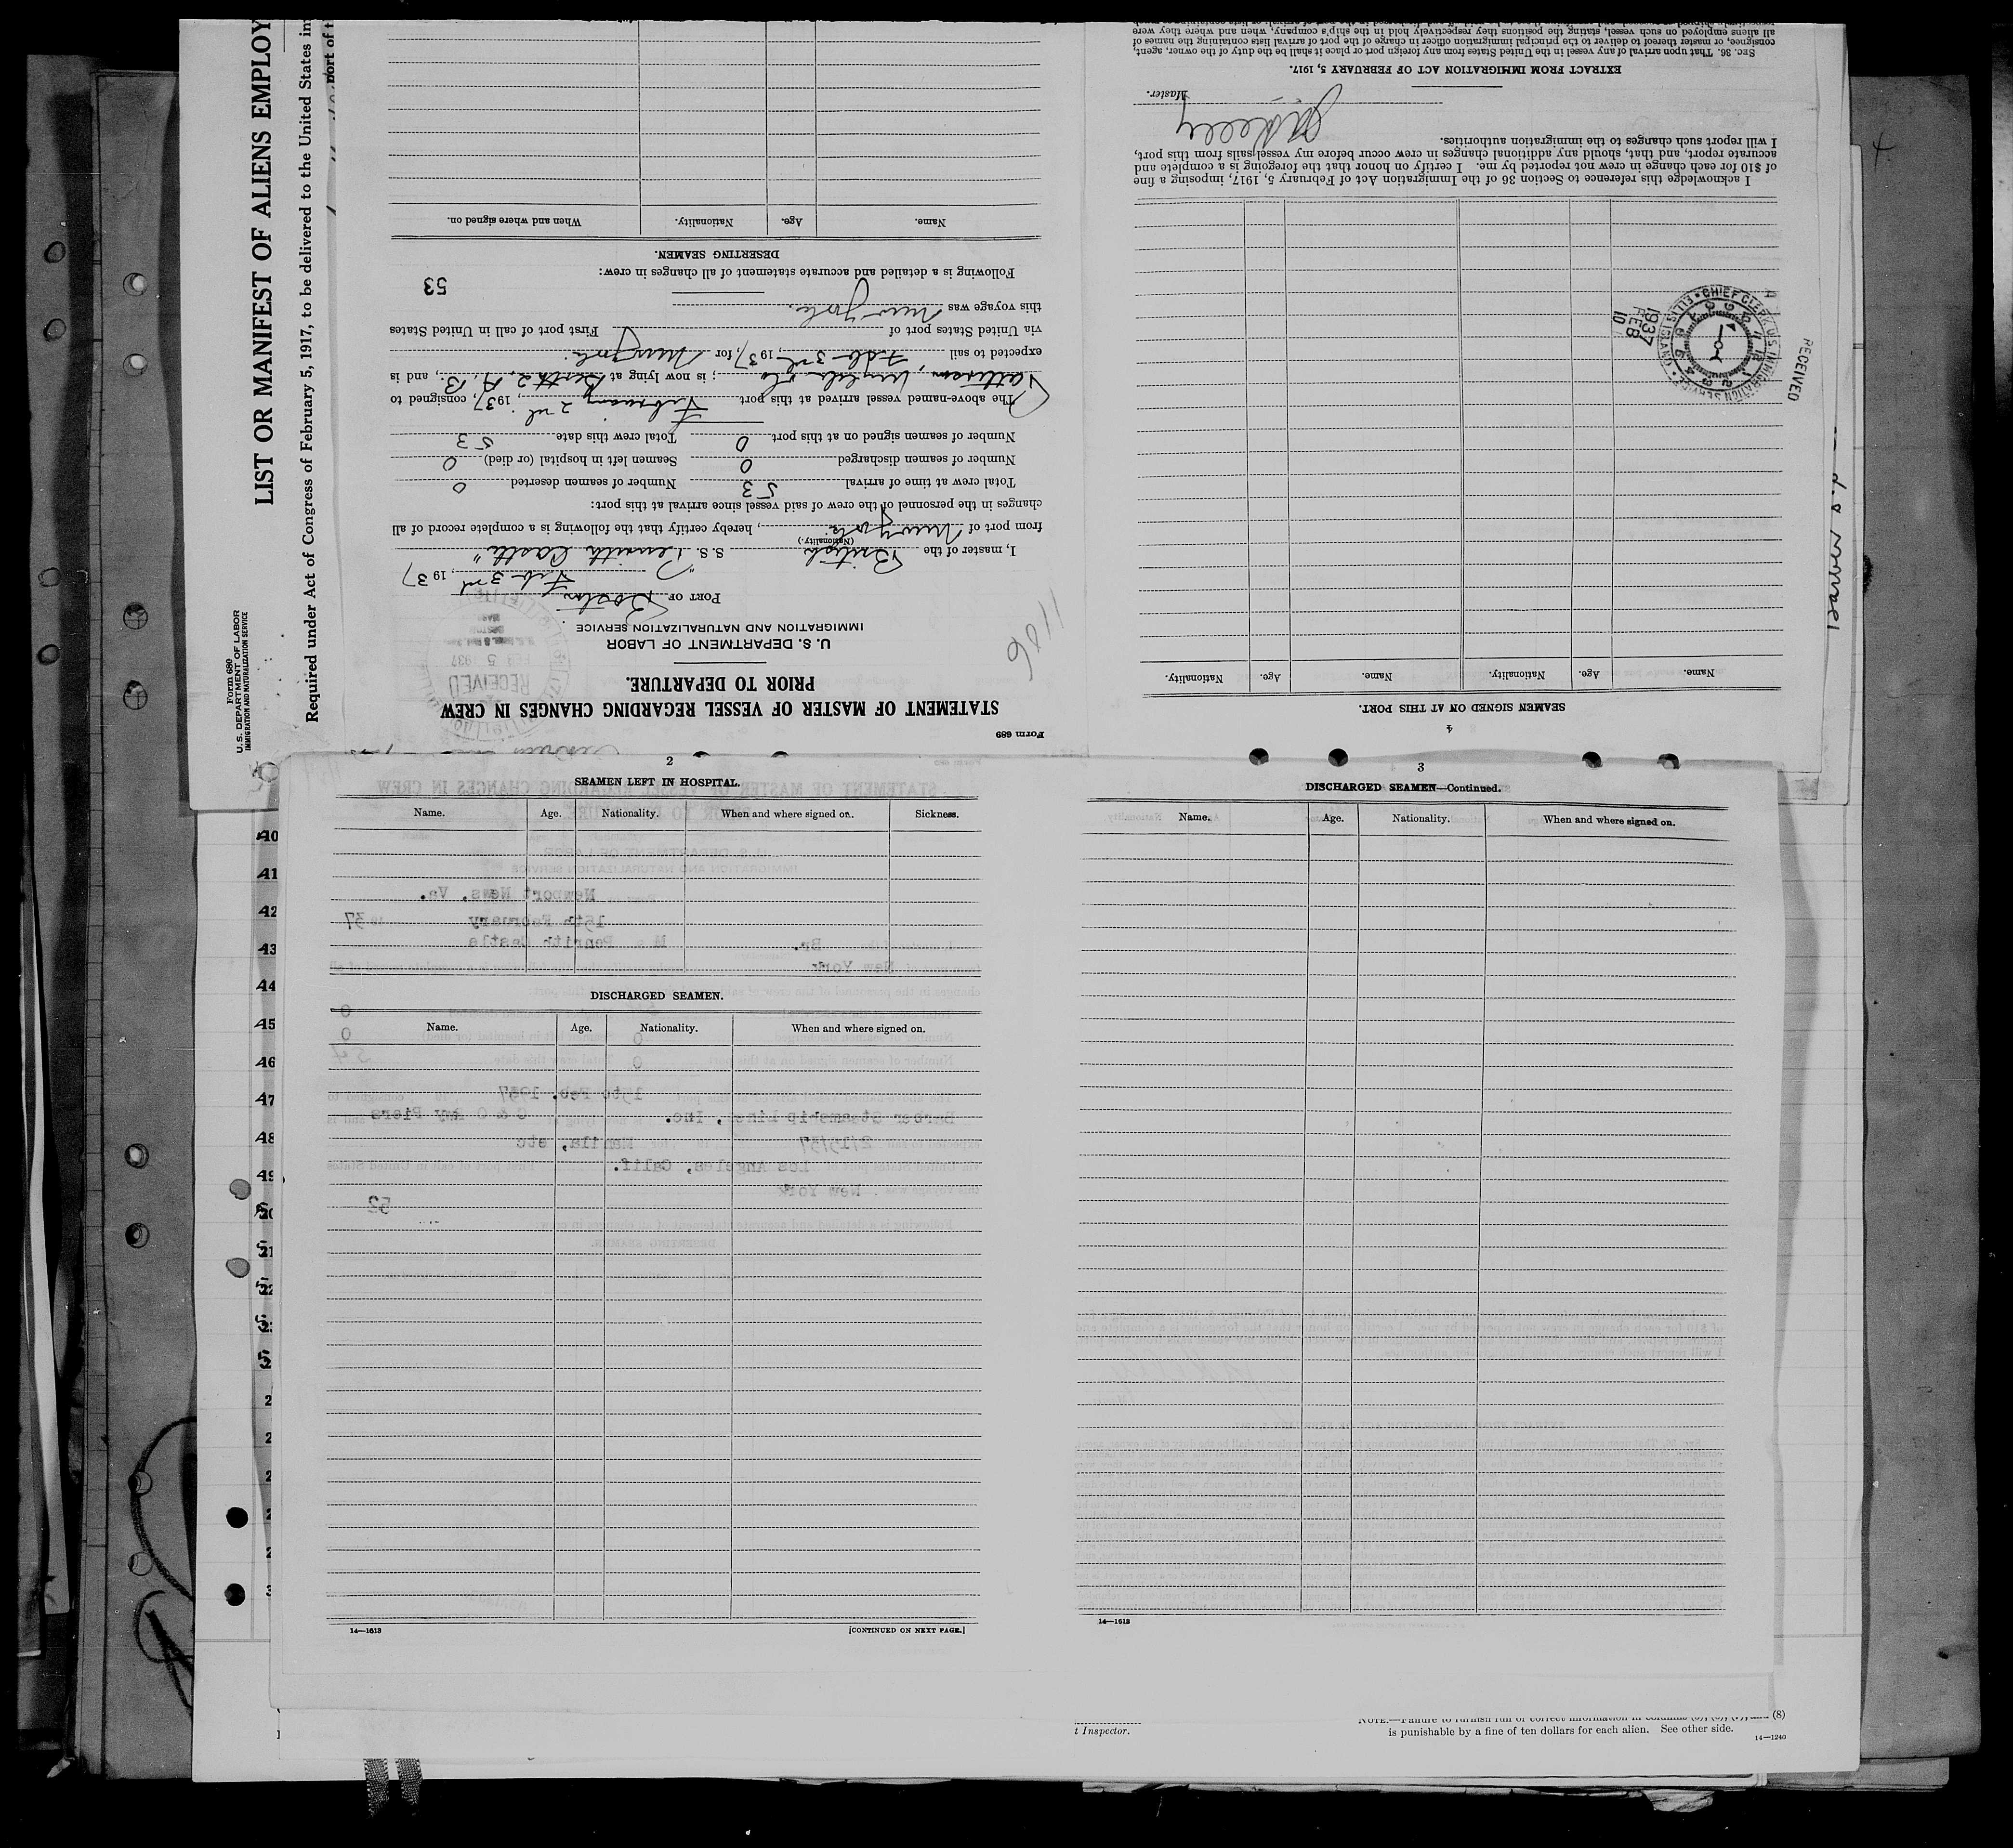 LIST OR MANIFEST OF ALIENS EMPLOY
Required under Act of Congress of February 5, 1917, to be delivered to the United States im
port of t
Form 680
U. S. DEPARTMENT OF LABOR
IMMIGRATION AND NATURALIZATION SERVICE
Form 689
STATEMENT OF MASTER OF VESSEL REGARDING CHANGES IN CREW
PRIOR TO DEPARTURE.
U. S. DEPARTMENT OF LABOR
IMMIGRATION AND NATURALIZATION SERVICE
RECEIVED
FEB 5 1937
1106
PORT OF Boston Feb 3rd, 1937
I, master of the British S. S. "Penrith Castle"
(Nationality.)
from port of New York, hereby certify that the following is a complete record of all
changes in the personnel of the crew of said vessel since arrival at this port:
Total crew at time of arrival 53 Number of seamen deserted 0
Number of seamen discharged 0 Seamen left in hospital (or died) 0
Number of seamen signed on at this port 0 Total crew this date 53
The above-named vessel arrived at this port February 2nd, 1937, consigned to
Patterson, Wylde & Co; is now lying at Berth 2, A. B., and is
expected to sail Feb 3rd, 1937, for New York.
via United States port of First port of call in United States
this voyage was New York
Following is a detailed and accurate statement of all changes in crew:
53
DESERTING SEAMEN.
Name. Age. Nationality. When and where signed on.
4
SEAMEN SIGNED ON AT THIS PORT.
Name. Age. Nationality. Name. Age. Nationality.
RECEIVED
CHIEF CLERK U. S. IMMIGRATION SERVICE ELLIS ISLAND
1937
FEB
10
I acknowledge this reference to Section 36 of the Immigration Act of February 5, 1917, imposing a fine
of $10 for each change in crew not reported by me. I certify on honor that the foregoing is a complete and
accurate report, and that, should any additional changes in crew occur before my vessel sails from this port,
I will report such changes to the immigration authorities.
Master.
EXTRACT FROM IMMIGRATION ACT OF FEBRUARY 5, 1917.
Sec. 36. That upon arrival of any vessel in the United States from any foreign port or place it shall be the duty of the owner, agent,
consignee, or master thereof to deliver to the principal immigration officer in charge of the port of arrival lists containing the names of
all aliens employed on such vessel, stating the positions they respectively hold in the ship's company, when and where they were
2
SEAMEN LEFT IN HOSPITAL.
Name. Age. Nationality. When and where signed on. Sickness.
Newport News, Va.
15th February 1937
Br. M s Penrith Castle
New York
DISCHARGED SEAMEN.
Name. Age. Nationality. When and where signed on.
0
0
0
0
54
15th Feb. 1937
Barber Steamship Lines, Inc. C & O Rwy Piers
2/15/37 Manila, etc
Los Angeles, Calif.
New York
52
14—1613 [CONTINUED ON NEXT PAGE.]
3
DISCHARGED SEAMEN—Continued.
Name. Age. Nationality. When and where signed on.
14—1613
10
11
12
13
14
15
16
17
18
19
20
21
t Inspector.
is punishable by a fine of ten dollars for each alien. See other side.
(8)
14—1240